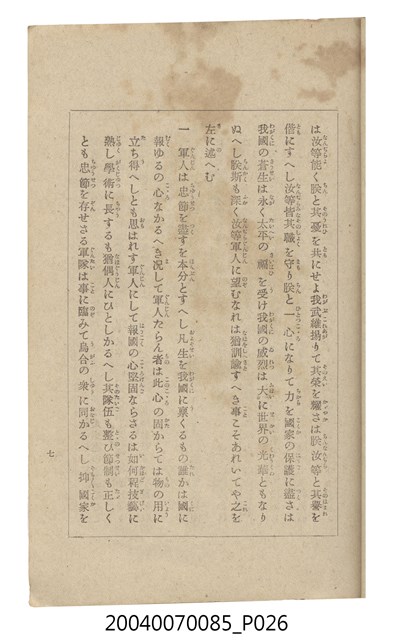 は汝等能く朕と其憂を共にせよ我武維揚りて其榮を耀さは朕汝等と其譽を
偕にすへし汝等皆其職を守り朕と一心になりて力を國家の保護に盡さは
我國の蒼生は永く太平の福を受け我國の威烈は大に世界の光華ともなり
ぬへし朕斯も深く汝等軍人に望むなれは猶訓諭すへき事こそあれいてや之を
左に述へむ
一軍人は忠節を盡すを本分とすへし凡生を我國に禀くるもの誰かは國に
報ゆるの心なかるへき况して軍人たらん者は此心の固からては物の用に
立ち得へしとも思はれす軍人にして報國の心堅固ならさるは如何程技藝に
熟し學術に長するも猶偶人にひとしかるへし其隊伍も整ひ節制も正しく
とも忠節を存せさる軍隊は事に臨みて烏合の衆に同かるへし抑國家を
七
20040070085_P026